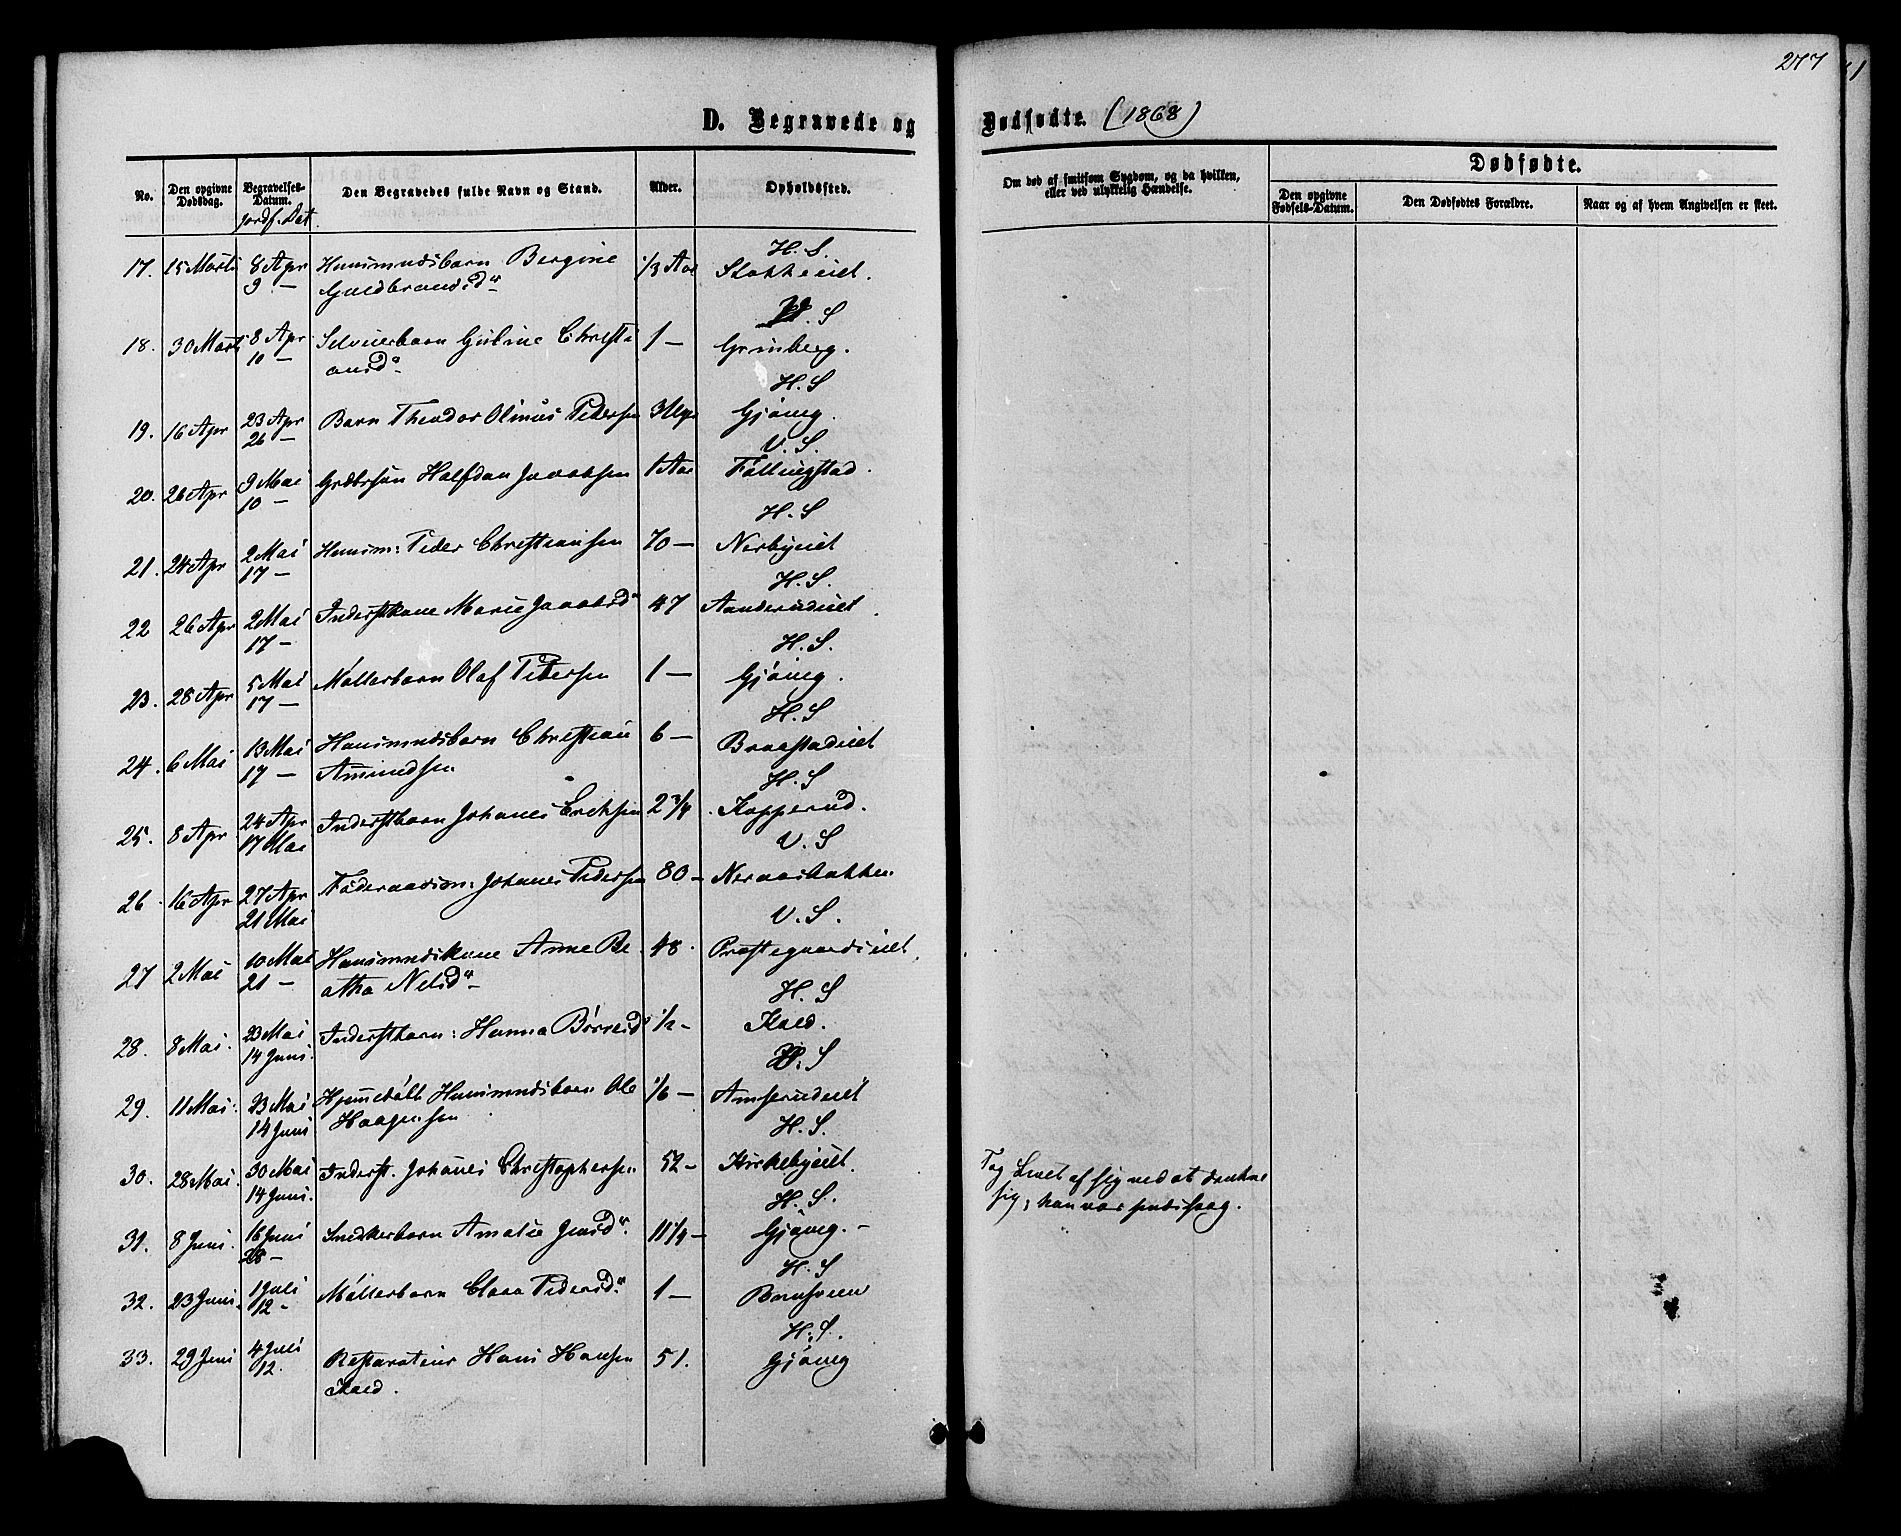 277
D. Begravede og Dødfødte. (1868)
No.
Den opgivne Dødsdag.
Begravelses-Datum.
jordf. Dat.
Den Begravedes fulde Navn og Stand.
Alder.
Opholdssted.
Om død af smitsom Sygdom, og da hvilken, eller ved ulykkelig Hændelse.
Dødfødte.
Den opgivne Fødsels-Datum.
Den Dødfødtes Forældre.
Naar og af hvem Angivelsen er skeet.
H. S.
17. 15 Marts 8 Apr Huusmndsbarn Bergine 1/3 Aar Stokkeeiet.
9 — Guldbransd.
S
18. 30 Marts 8 Apr Gubine Christi 1 — Grinberg.
10 — ansd.
H. S
19. 16 Apr 23 Apr Barn Theodor Olinus Pedersen 3 Uger Gjøvig.
26 —
V. S.
20. 26 Apr 9 Mai Halfdan Jacobsen 1 Aar Fallingstad.
10 —
H. S
21. 24 Apr 2 Mai Huusm: Peder Christiansen 70 — Nerbyeiet
17 —
H. S.
22 26 Apr 2 Mai Inderstkone Marie Jacobsd 47 Aanderudeiet.
17 —
H. S.
23. 28 Apr 5 Mai Møllerbarn Olaf Pedersen 1 — Gjøvig.
17 —
H. S
24. 6 Mai 13 Mai Huusmndsbarn Christian 6 — Braastadeiet
17 — Amundsen
H. S
25. 8 Apr 24 Apr Inderstbarn Johanes Eriksen 2 3/4 Kopperud.
17 Mai
V. S
26. 16 Apr 27 Apr Føderaadsm: Johanes Pedersen 80 — Neraasbakken
21 Mai
V. S.
27 2 Mai 10 Mai Huusmndskone Anne Be 48. Præstegaardseiet.
21 — atha Nelsd.
H. S
28. 8 Mai. 23 Mai Inderstbarn: Hanna Børresd 1/2 — Kold.
14 Juni.
S
29. 11 Mai. 23 Mai Hjemedøbt Huusmndsbarn Ole 1/6 — Amserudeiet
14 Juni Haagensen
H. S.
30. 28 Mai. 30 Mai Inderst. Johanes Christophersen 52 — Kirkebyeiet. Tog Livet af sig ved at drukne
14 Juni. sig; han var sindssvag.
H. S.
31. 8 Juni. 16 Juni Snedkerbarn Amalie Jensd. 11 1/4 — Gjøvig. —
28 —
H. S
32. 23 Juni. 1 Juli Møllerbarn Clara Pedersd. 1 — Brusveen
12 —
H. S.
33. 29 Juni 4 Juli Reparateur Hans Hansen 51. Gjøvig
12. Kold.